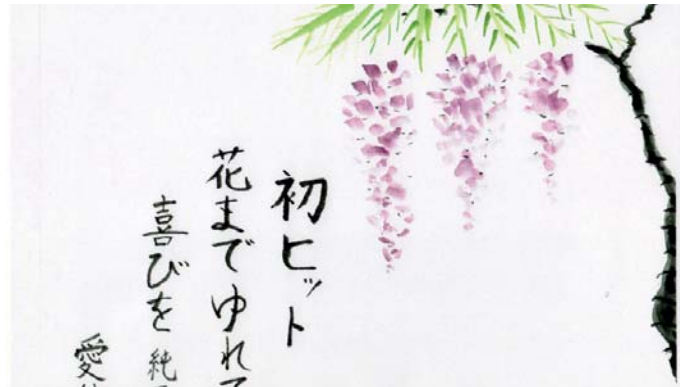 初ヒット
花までゆれて
喜びを 純
愛